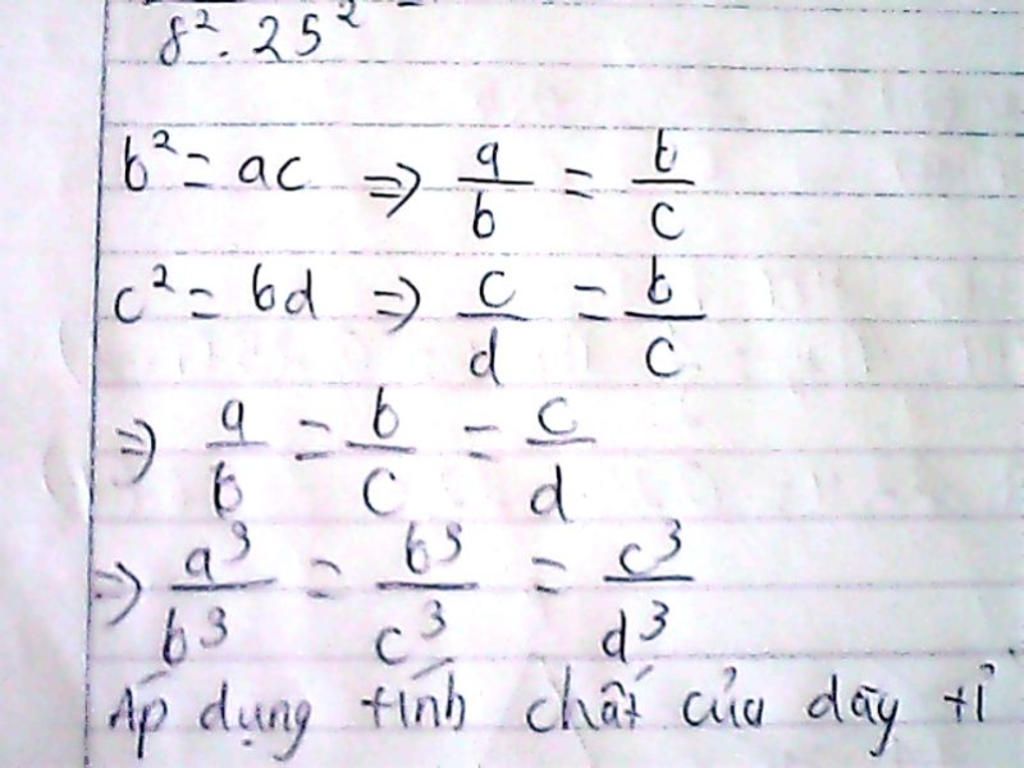 8². 25²
b² = ac ⇒ a/b = b/c
c² = bd ⇒ c/d = b/c
⇒ a/b = b/c = c/d
⇒ a³/b³ = b³/c³ = c³/d³
Áp dụng tính chất của dãy tỉ